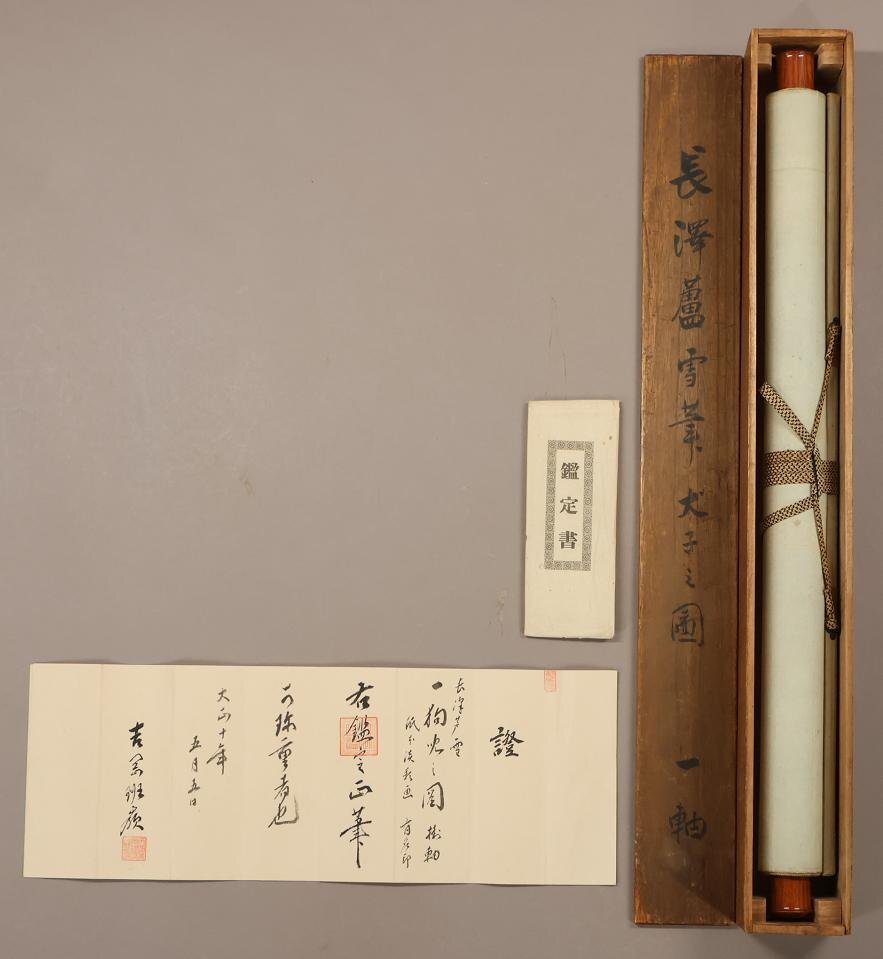 長澤蘆雪筆犬子之圖 一軸
鑑定書
證
長澤芦雪
一狗児之図 掛軸
紙本淡彩画 有落印
右鑑定正筆
可珍重者也
大正十年
五月五日